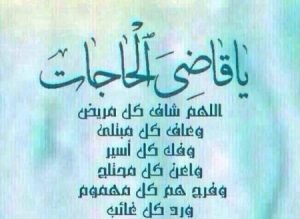 يَا قَاضِيَ ٱلْحَاجَات
اللهم شاف كل مريض
وعاف كل مبتلى
وفك كل أسير
واعن كل محتاج
وفرج هم كل مهموم
ورد كل غائب